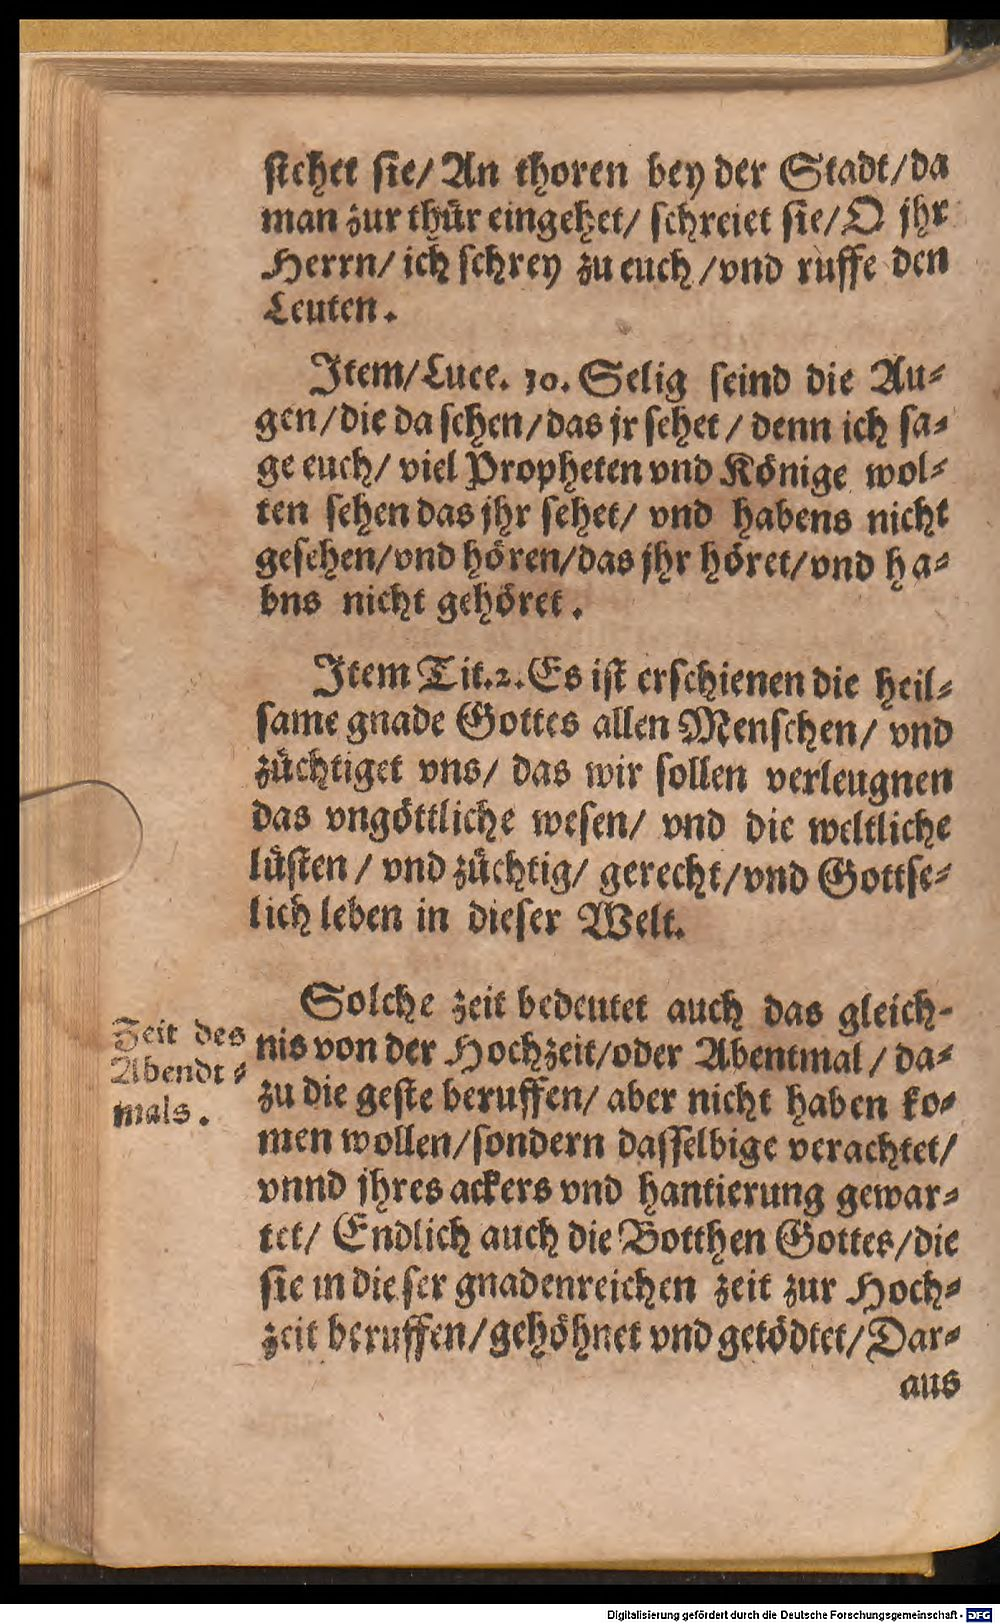 stehet sie/ An thoren bey der Stadt/ da
man zur thür eingehet/ schreiet sie/ O jhr
Herrn/ ich schrey zu euch/ vnd ruffe den
Leuten.
Item/ Luce. 10. Selig seind die Au-
gen/ die da sehen/ das jr sehet/ denn ich sa-
ge euch/ viel Propheten vnd Könige wol-
ten sehen das jhr sehet/ vnd habens nicht
gesehen/ vnd hören/ das jhr höret/ vnd ha-
bns nicht gehöret.
Item Tit. 2. Es ist erschienen die heil-
same gnade Gottes allen Menschen/ vnd
züchtiget vns/ das wir sollen verleugnen
das vngöttliche wesen/ vnd die weltliche
lüsten/ vnd züchtig/ gerecht/ vnd Gottse-
lich leben in dieser Welt.
Zeit des
Abendt-
mals.
Solche zeit bedeutet auch das gleich-
nis von der Hochzeit/ oder Abentmal/ da-
zu die geste beruffen/ aber nicht haben ko-
men wollen/ sondern dasselbige verachtet/
vnnd jhres ackers vnd hantierung gewar-
tet/ Endlich auch die Botthen Gottes/ die
sie in dieser gnadenreichen zeit zur Hoch-
zeit beruffen/ gehöhnet vnd getödtet/ Dar-
aus
Digitalisierung gefördert durch die Deutsche Forschungsgemeinschaft - DFG